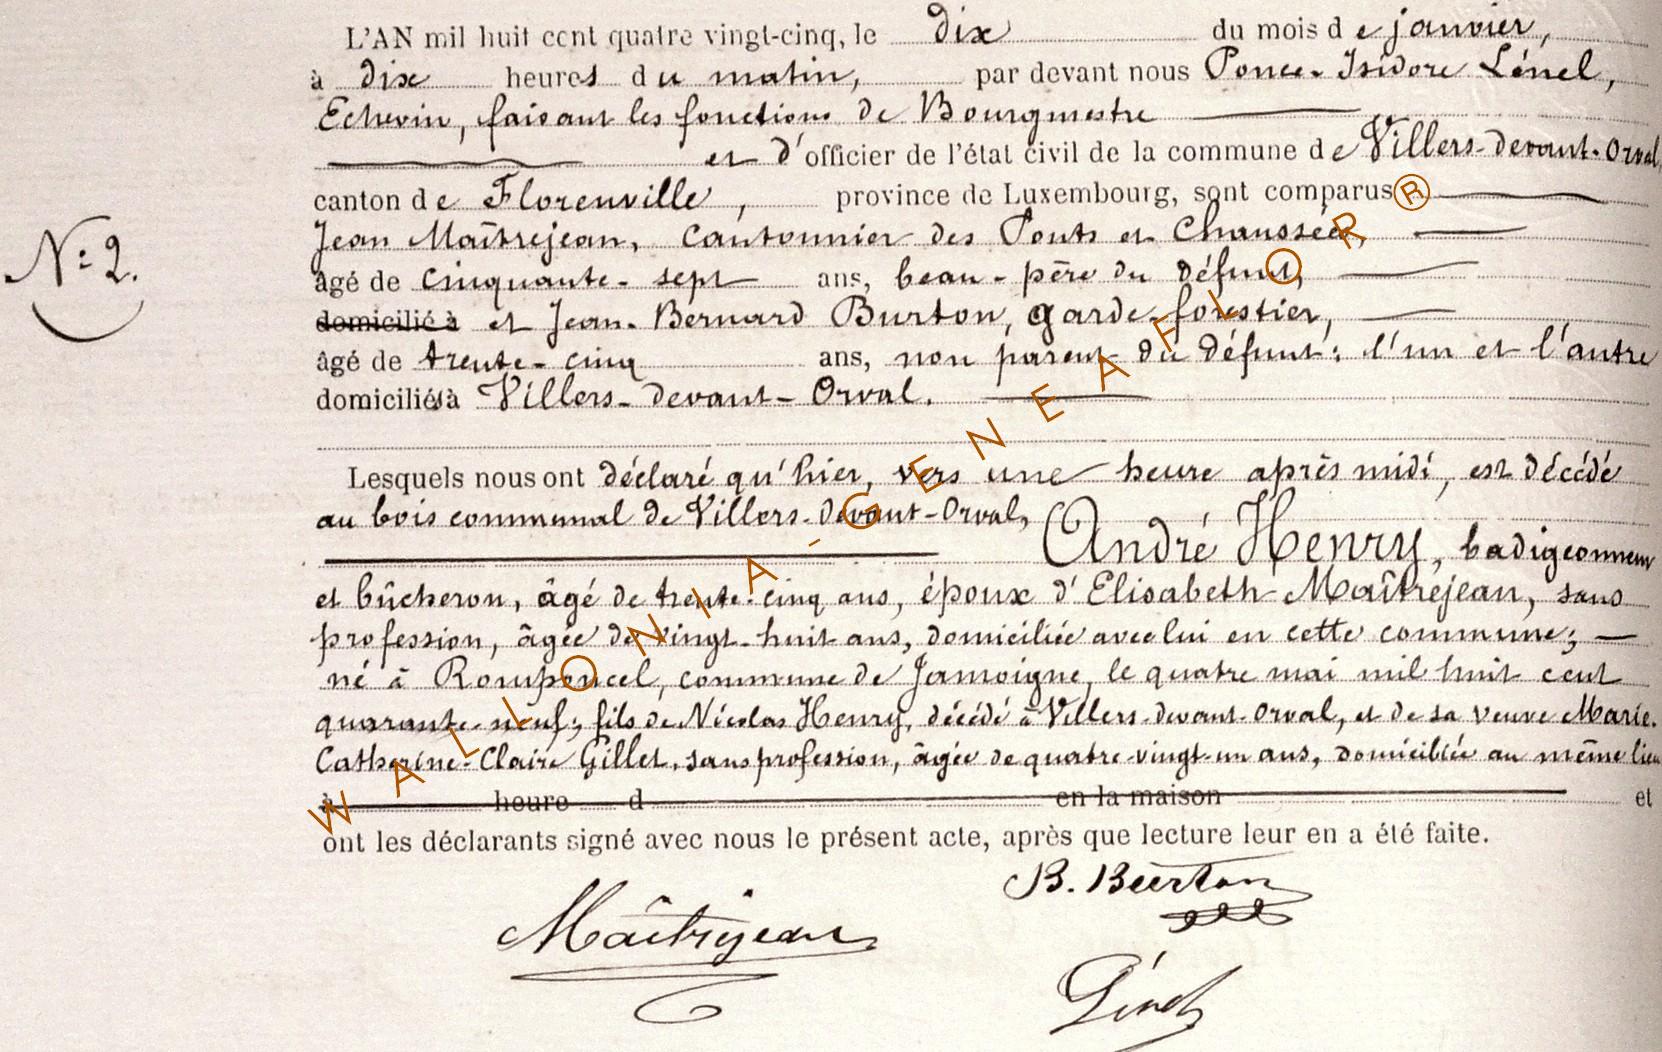 L'AN mil huit cent quatre vingt-cinq, le dix du mois de janvier,
à dix heures du matin, par devant nous Ponce-Isidore Lénel,
Echevin, faisant les fonctions de Bourgmestre
et d'officier de l'état civil de la commune de Villers-devant-Orval,
canton de Florenville, province de Luxembourg, sont comparus
N° 2.
Jean Maîtrejean, cantonnier des Ponts et Chaussées,
âgé de cinquante-sept ans, beau-père du défunt,
domicilié à et Jean-Bernard Burton, garde-forestier,
âgé de trente-cinq ans, non parent du défunt; l'un et l'autre
domiciliés à Villers-devant-Orval.
Lesquels nous ont déclaré qu'hier, vers une heure après midi, est décédé
au bois communal de Villers-devant-Orval,
André Henry, badigeonneur
et bûcheron, âgé de trente-cinq ans, époux d'Elisabeth Maîtrejean, sans
profession, âgée de vingt-huit ans, domiciliée avec lui en cette commune;
né à Romponcel, commune de Jamoigne, le quatre mai mil huit cent
quarante-neuf; fils de Nicolas Henry, décédé à Villers-devant-Orval, et de sa veuve Marie-
Catherine-Claire Gillet, sans profession, âgée de quatre-vingt-un ans, domiciliée au même lieu
à heure d en la maison et
ont les déclarants signé avec nous le présent acte, après que lecture leur en a été faite.
B. Burton
Maîtrejean
Lénel
WALLONIA-GENEAFLOR®